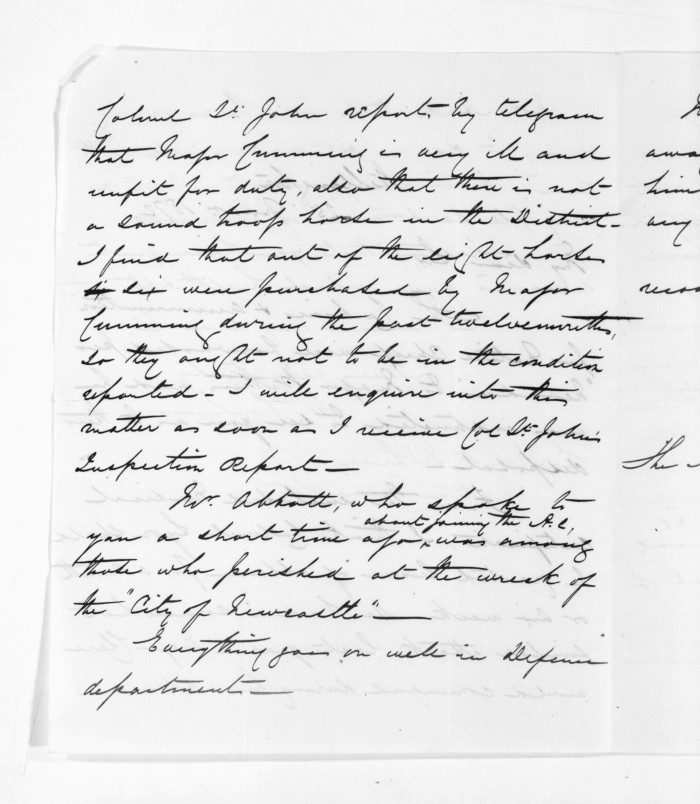 Colonel St. John reports by telegram
that Major Cumming is very ill and
unfit for duty, also that there is not
a sound troop horse in the District -
I find that out of the eight horses
six were purchased by Major
Cumming during the past twelvemonths,
so they ought not to be in the condition
reported - I will enquire into this
matter as soon as I receive Col St. John's
Inspection Report -
Mr. Abbott, who spoke to
you a short time ago, about joining the A.C., was among
those who perished at the wreck of
the "City of Newcastle" -
Everything goes on well in Defence
department -
away
him
any
The